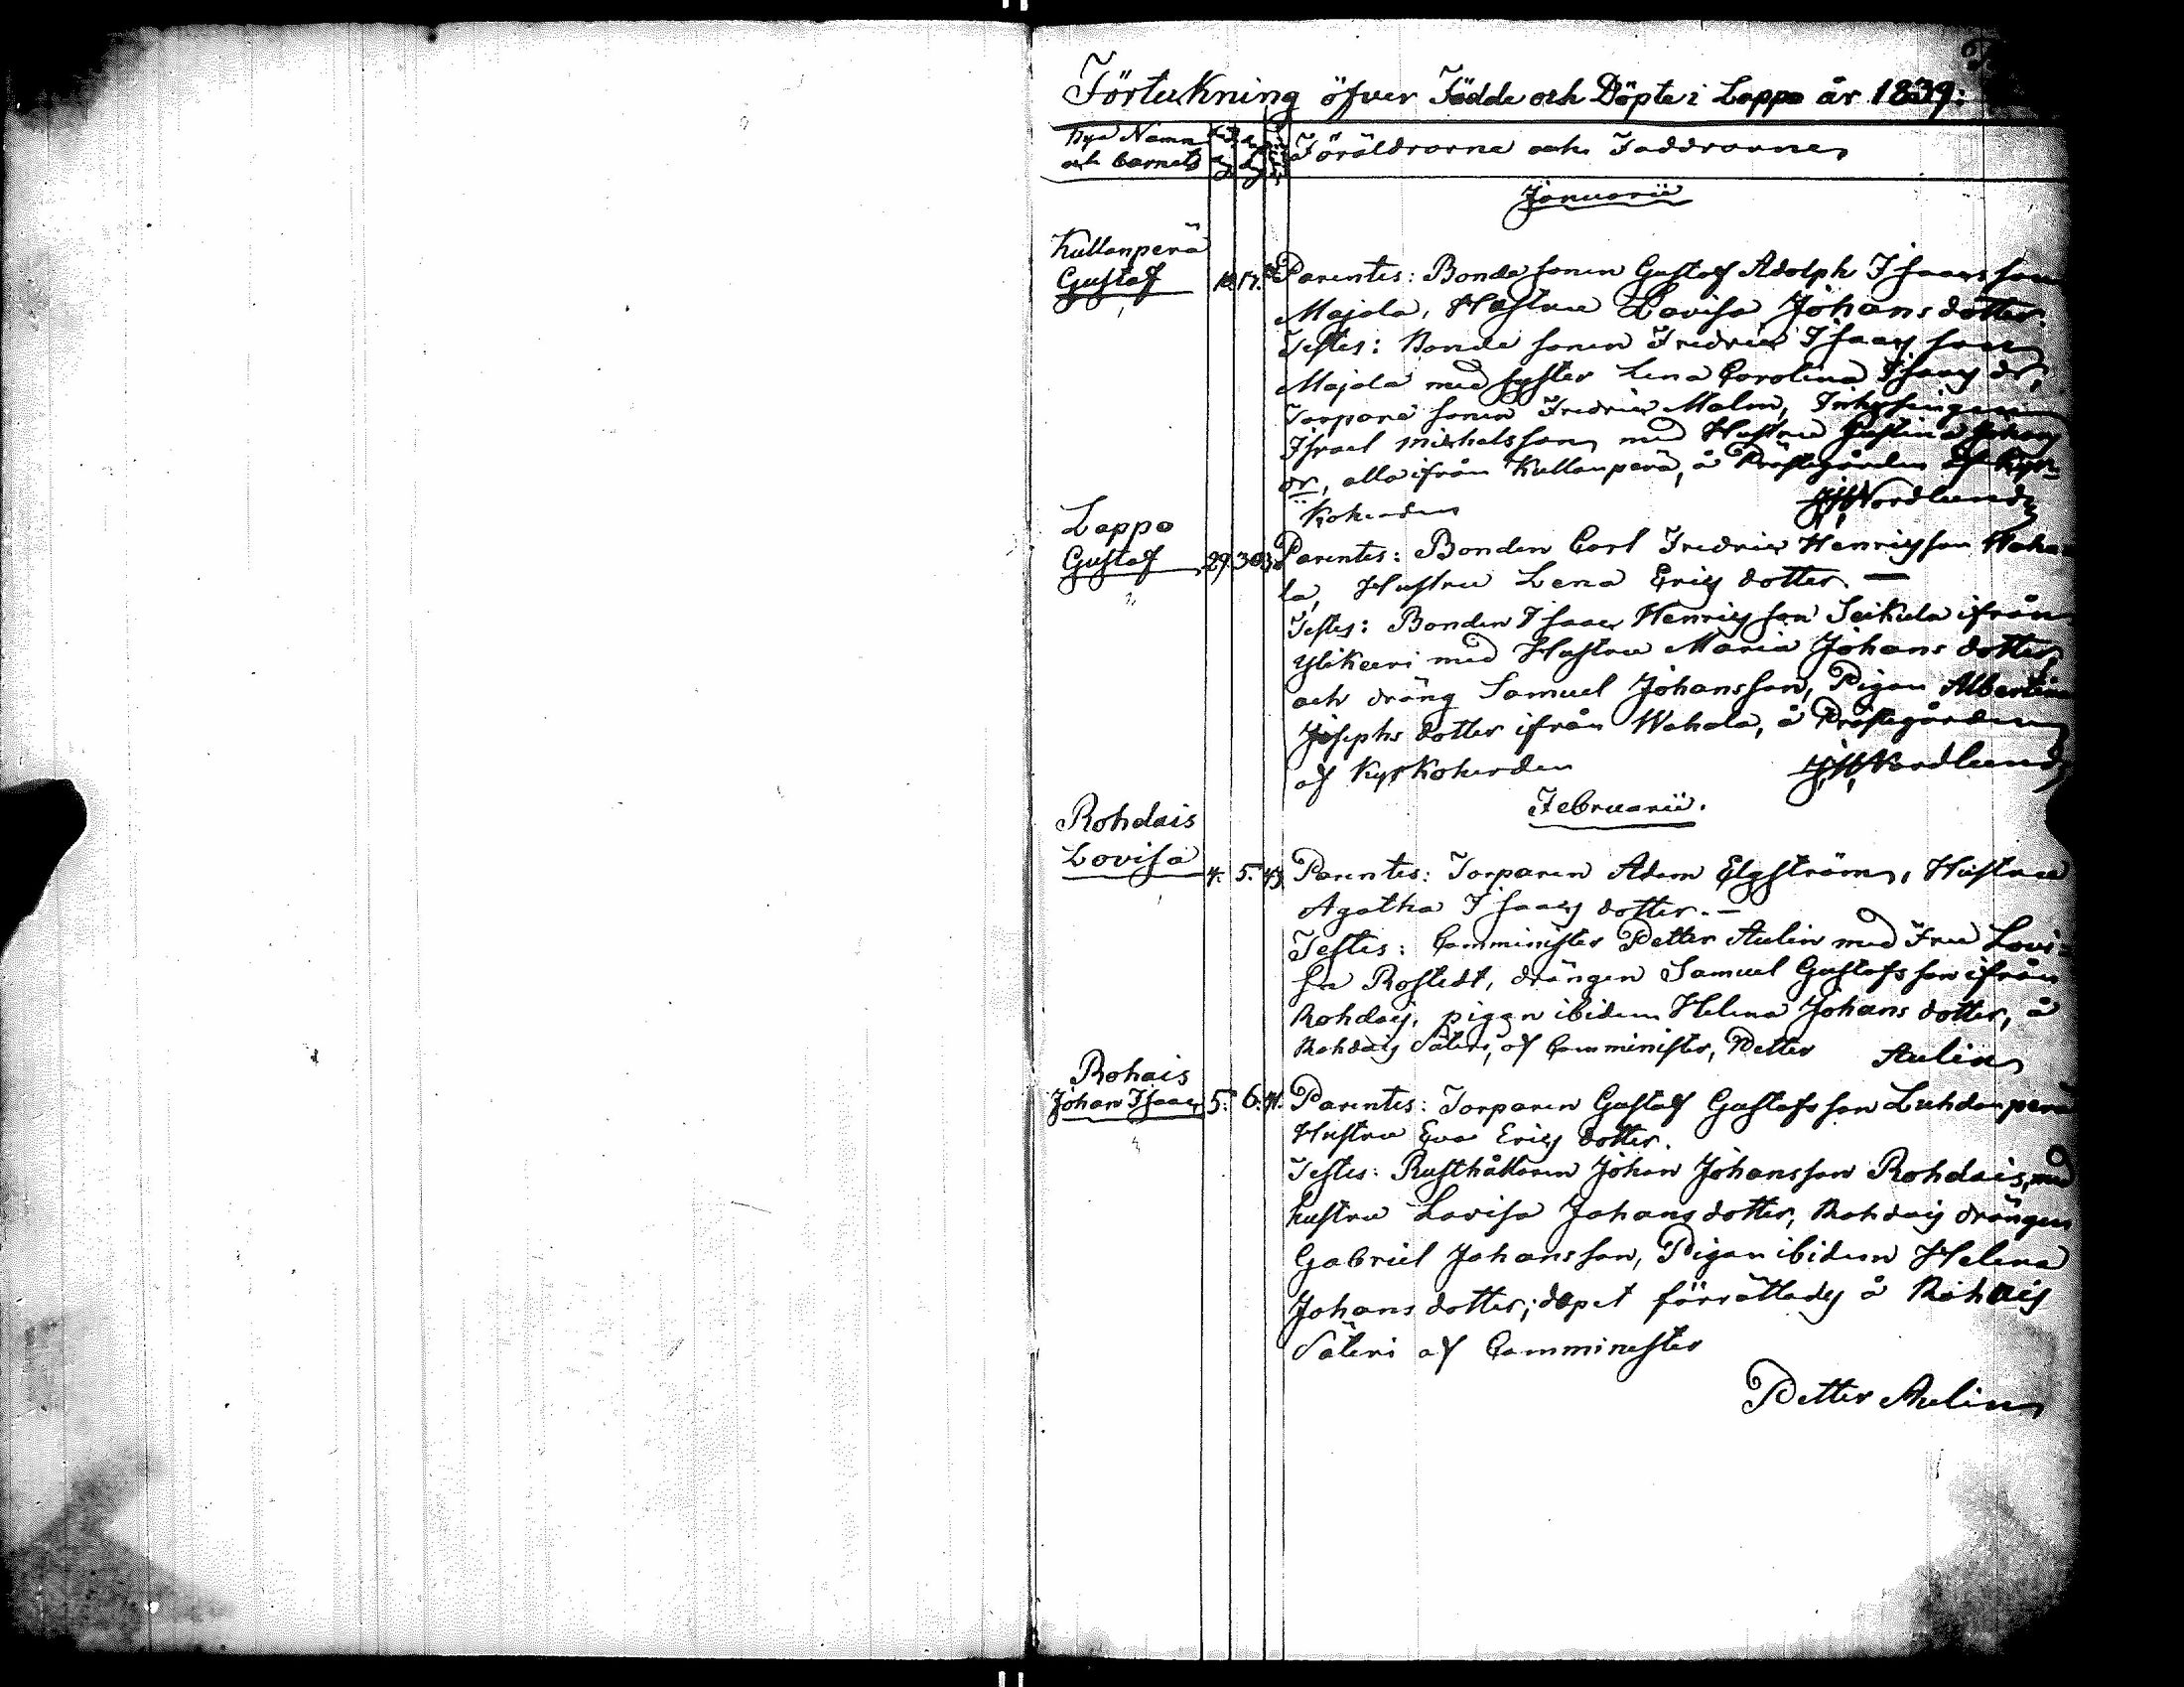 Förtekning öfver Födde och Döpte i Lappo år 1839:
Bya Namn
och barnets
Föräldrarne och Faddrarne
Januarii
Kullanperä
Gustaf 17. Parentes: Bonde sonen Gustaf Adolph Isaacsson
Majala, Hustru Lovisa Johans dotter.
Testes: Bonde sonen Fredric Isaacs son
Majala med syster Lena Carolina Isaacs dr,
Torpare sonen Fredric Malm, Inhysingen
Israel Michelsson med Hustru Gustina Johans
dr, alla ifrån Kullanperä, å Prästegården af Kyr-
koherden JHNordlund
Lappo
Gustaf 29 30 3 Parentes: Bonden Carl Fredric Henricsson Waha-
la, Hustru Lena Erics dotter. —
Testes: Bonden Isaac Henrics son Seikula ifrån
Ylikeeri med Hustru Maria Johans dotter,
och dräng Samuel Johansson, Pigan Albertina
Josephs dotter ifrån Wahala, å Prästegården
af Kyrkoherden JHNordlund
Februarii.
Rohdais
Lovisa 4. 5. Parentes: Torparen Adam Elgström, Hustru
Agatha Isaacs dotter. —
Testes: Comminister Petter Aulin med Fru Lovi-
sa Rostedt, drängen Samuel Gustafs son ifrån
Rohdais, pigan ibidem Helena Johans dotter, å
Rohdais Säteri, af Comminister, Petter Aulin
Rohais
Johan Isaac 5. 6. 4. Parentes: Torparen Gustaf Gustafs son Luhdanperä
Hustru Eva Erics dotter.
Testes: Rusthållaren Johan Johansson Rohdais, med
hustru Lovisa Johans dotter, Rohdais drängen
Gabriel Johansson, Pigan ibidem Helena
Johans dotter; döpet förrättades å Rohais
Säteri af Comminister
Petter Aulin